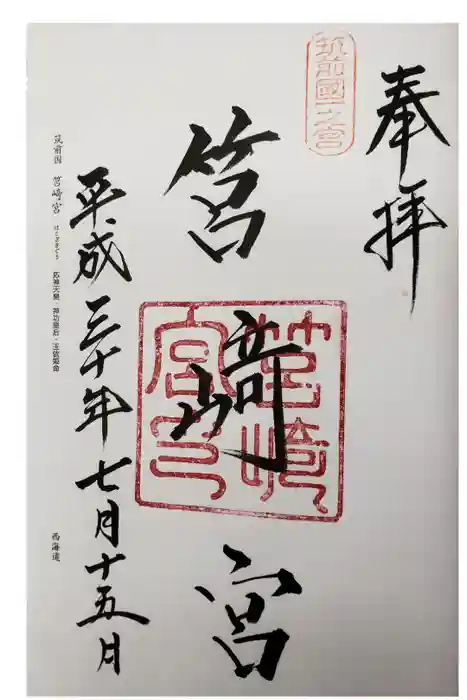 奉拝
筑前國一之宮
筥崎宮
筥崎宮印
平成三十年七月十五日
筑前国 筥崎宮 はこざきぐう 応神天皇・神功皇后・玉依姫命
西海道